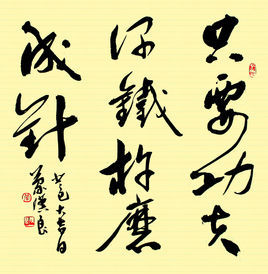 只要功夫
深鐵杵磨
成針